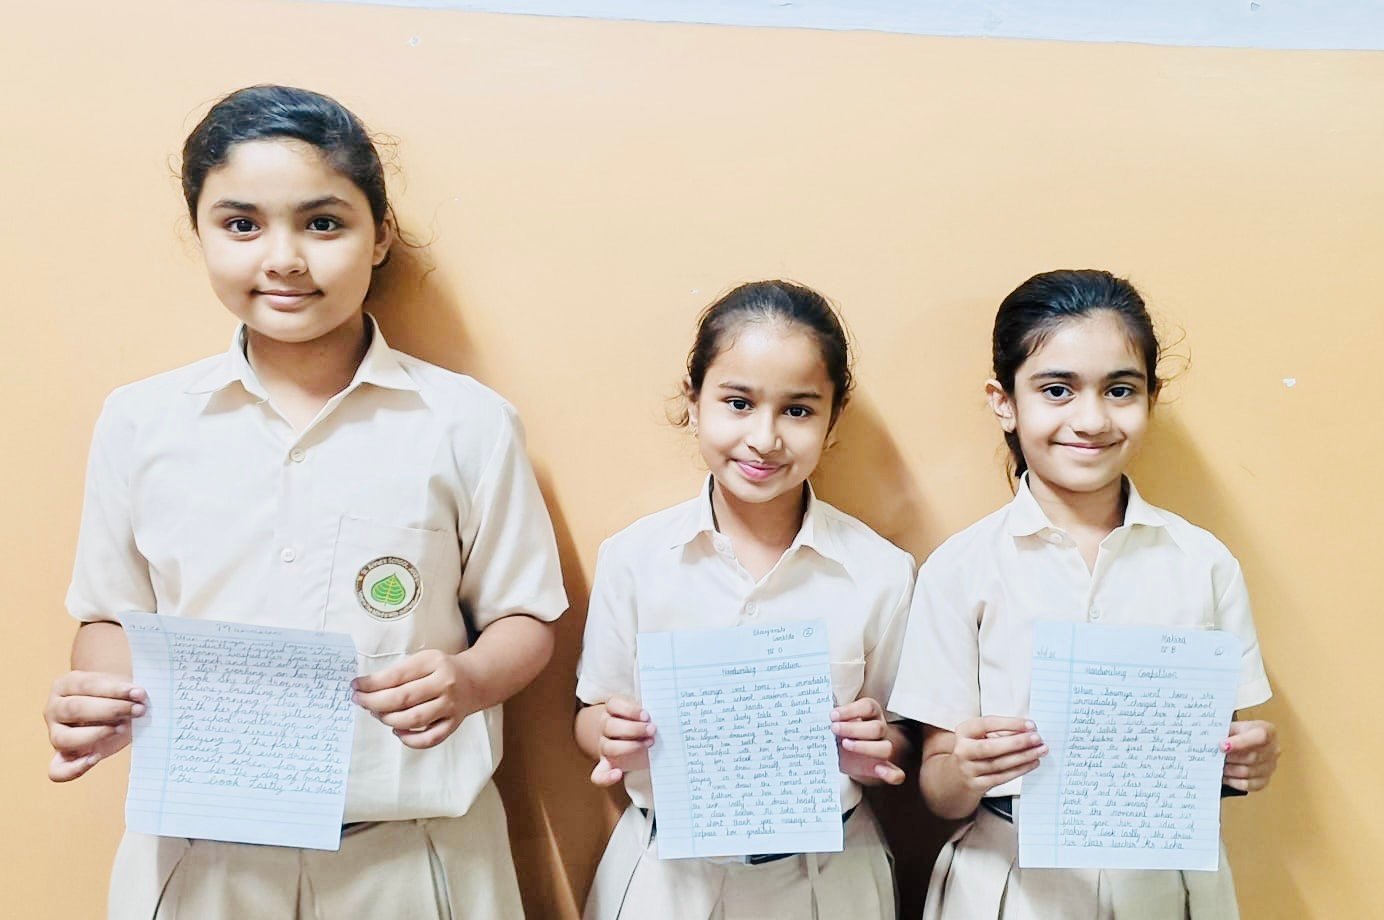 immediately changed her school
uniform, washed her face and hands
ate lunch and sat on her study table
to start working on her picture
book She began drawing the first
picture, brushing her teeth in
the morning, then breakfast
with her family, getting ready
for school and learning in class
she drew herself and Rila
playing in the park in the
evening she even drew the
moment when her father
gave her the idea of making
the book Lastly she drew
2
IV D
Handwriting competition
When Soumya went home, she immediately
changed her school uniform, washed
her face and hands, ate lunch and
sat on her study table to start
working on her picture book
She began drawing the first picture
brushing her teeth in the morning
then breakfast with her family, getting
ready for school and learning in
class she drew herself and Rila
playing in the park in the evening
she even drew the moment when
her father gave her idea of making
the book Lastly she drew herself with
her class teacher Ms Seha and wrote
a short thank you message to
express her gratitude
Mahira
IV B
Handwriting Competition
When Soumya went home, she
immediately changed her school
uniform washed her face and
hands, ate lunch and sat on her
study table to start working on
her picture book She began
drawing the first picture brushing
her teeth in the morning then
breakfast with her family
getting ready for school and
learning in class she drew
herself and Rila playing in the
park in the evening she even
drew the movement when her
father gave her the idea of
making book Lastly, she drew
her class teacher Ms Seha